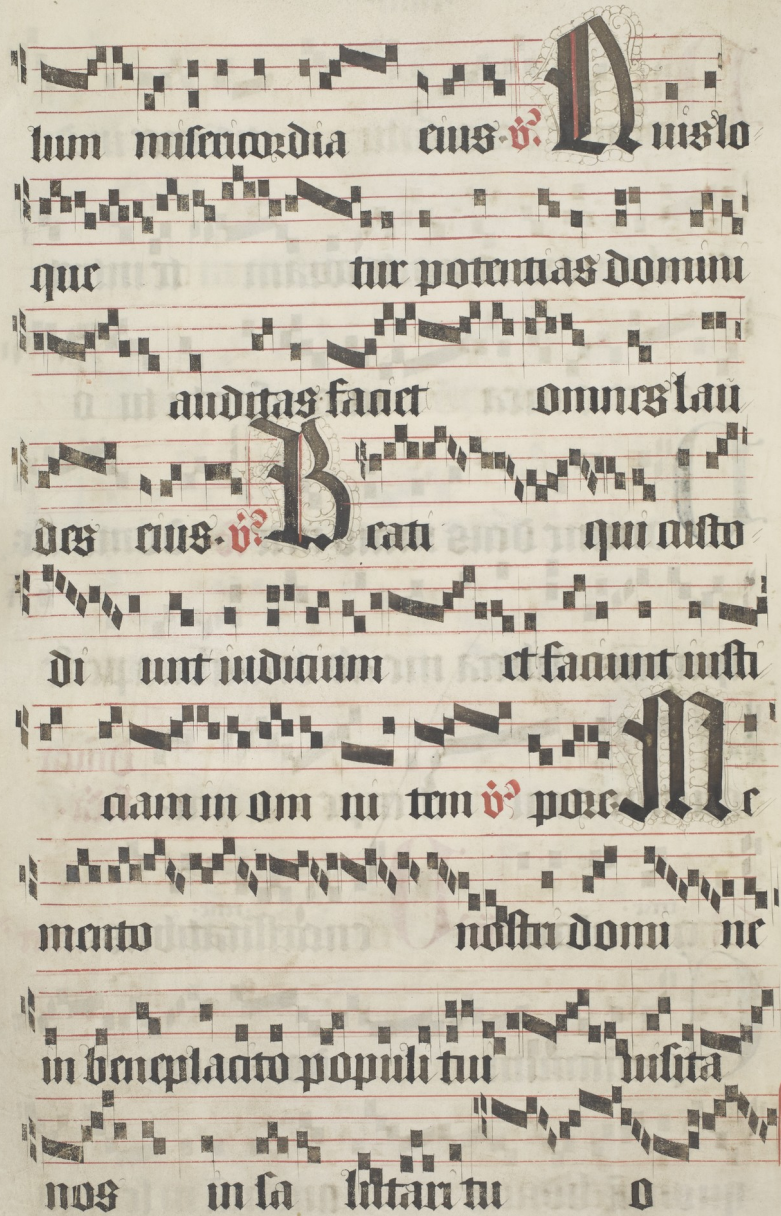 lum misericordia eius. v̄. Q uis lo
que tur potentias domini
auditas faciet omnes lau
des eius. v̄. B eati qui custo
di unt iudicium et faciunt iusti
ciam in om ni tem v̄. pore M e
mento nostri domi ne
in beneplacito populi tui visita
nos in sa lutari tu o